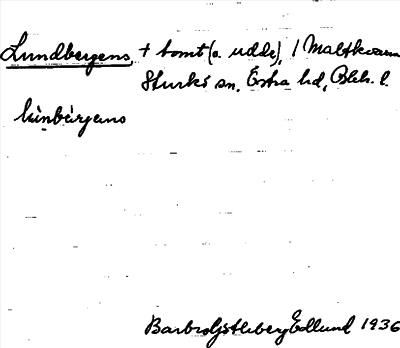 Lundbergens + tomt (o. udde), / Maltkvarn
Sturkö sn. Östra hd, Blek. l.
lùnbärjens
Barbro Edlund 1936